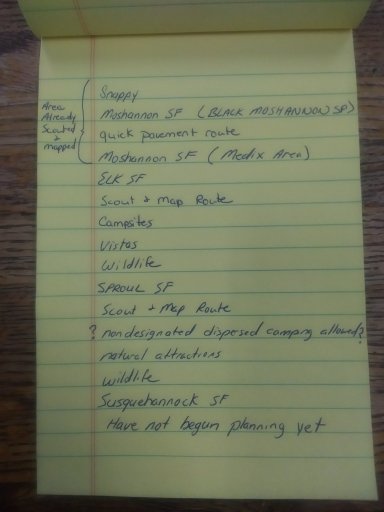 Snappy
Moshannon SF (BLACK MOSHANNON SP)
quick pavement route
Moshannon SF (Medix Area)
Area
Already
Scouted
+
mapped
ELK SF
Scout + Map Route
Campsites
Vistas
Wildlife
SPROUL SF
Scout + Map Route
? nondesignated dispersed camping allowed?
natural attractions
wildlife
Susquehannock SF
Have not begun planning yet